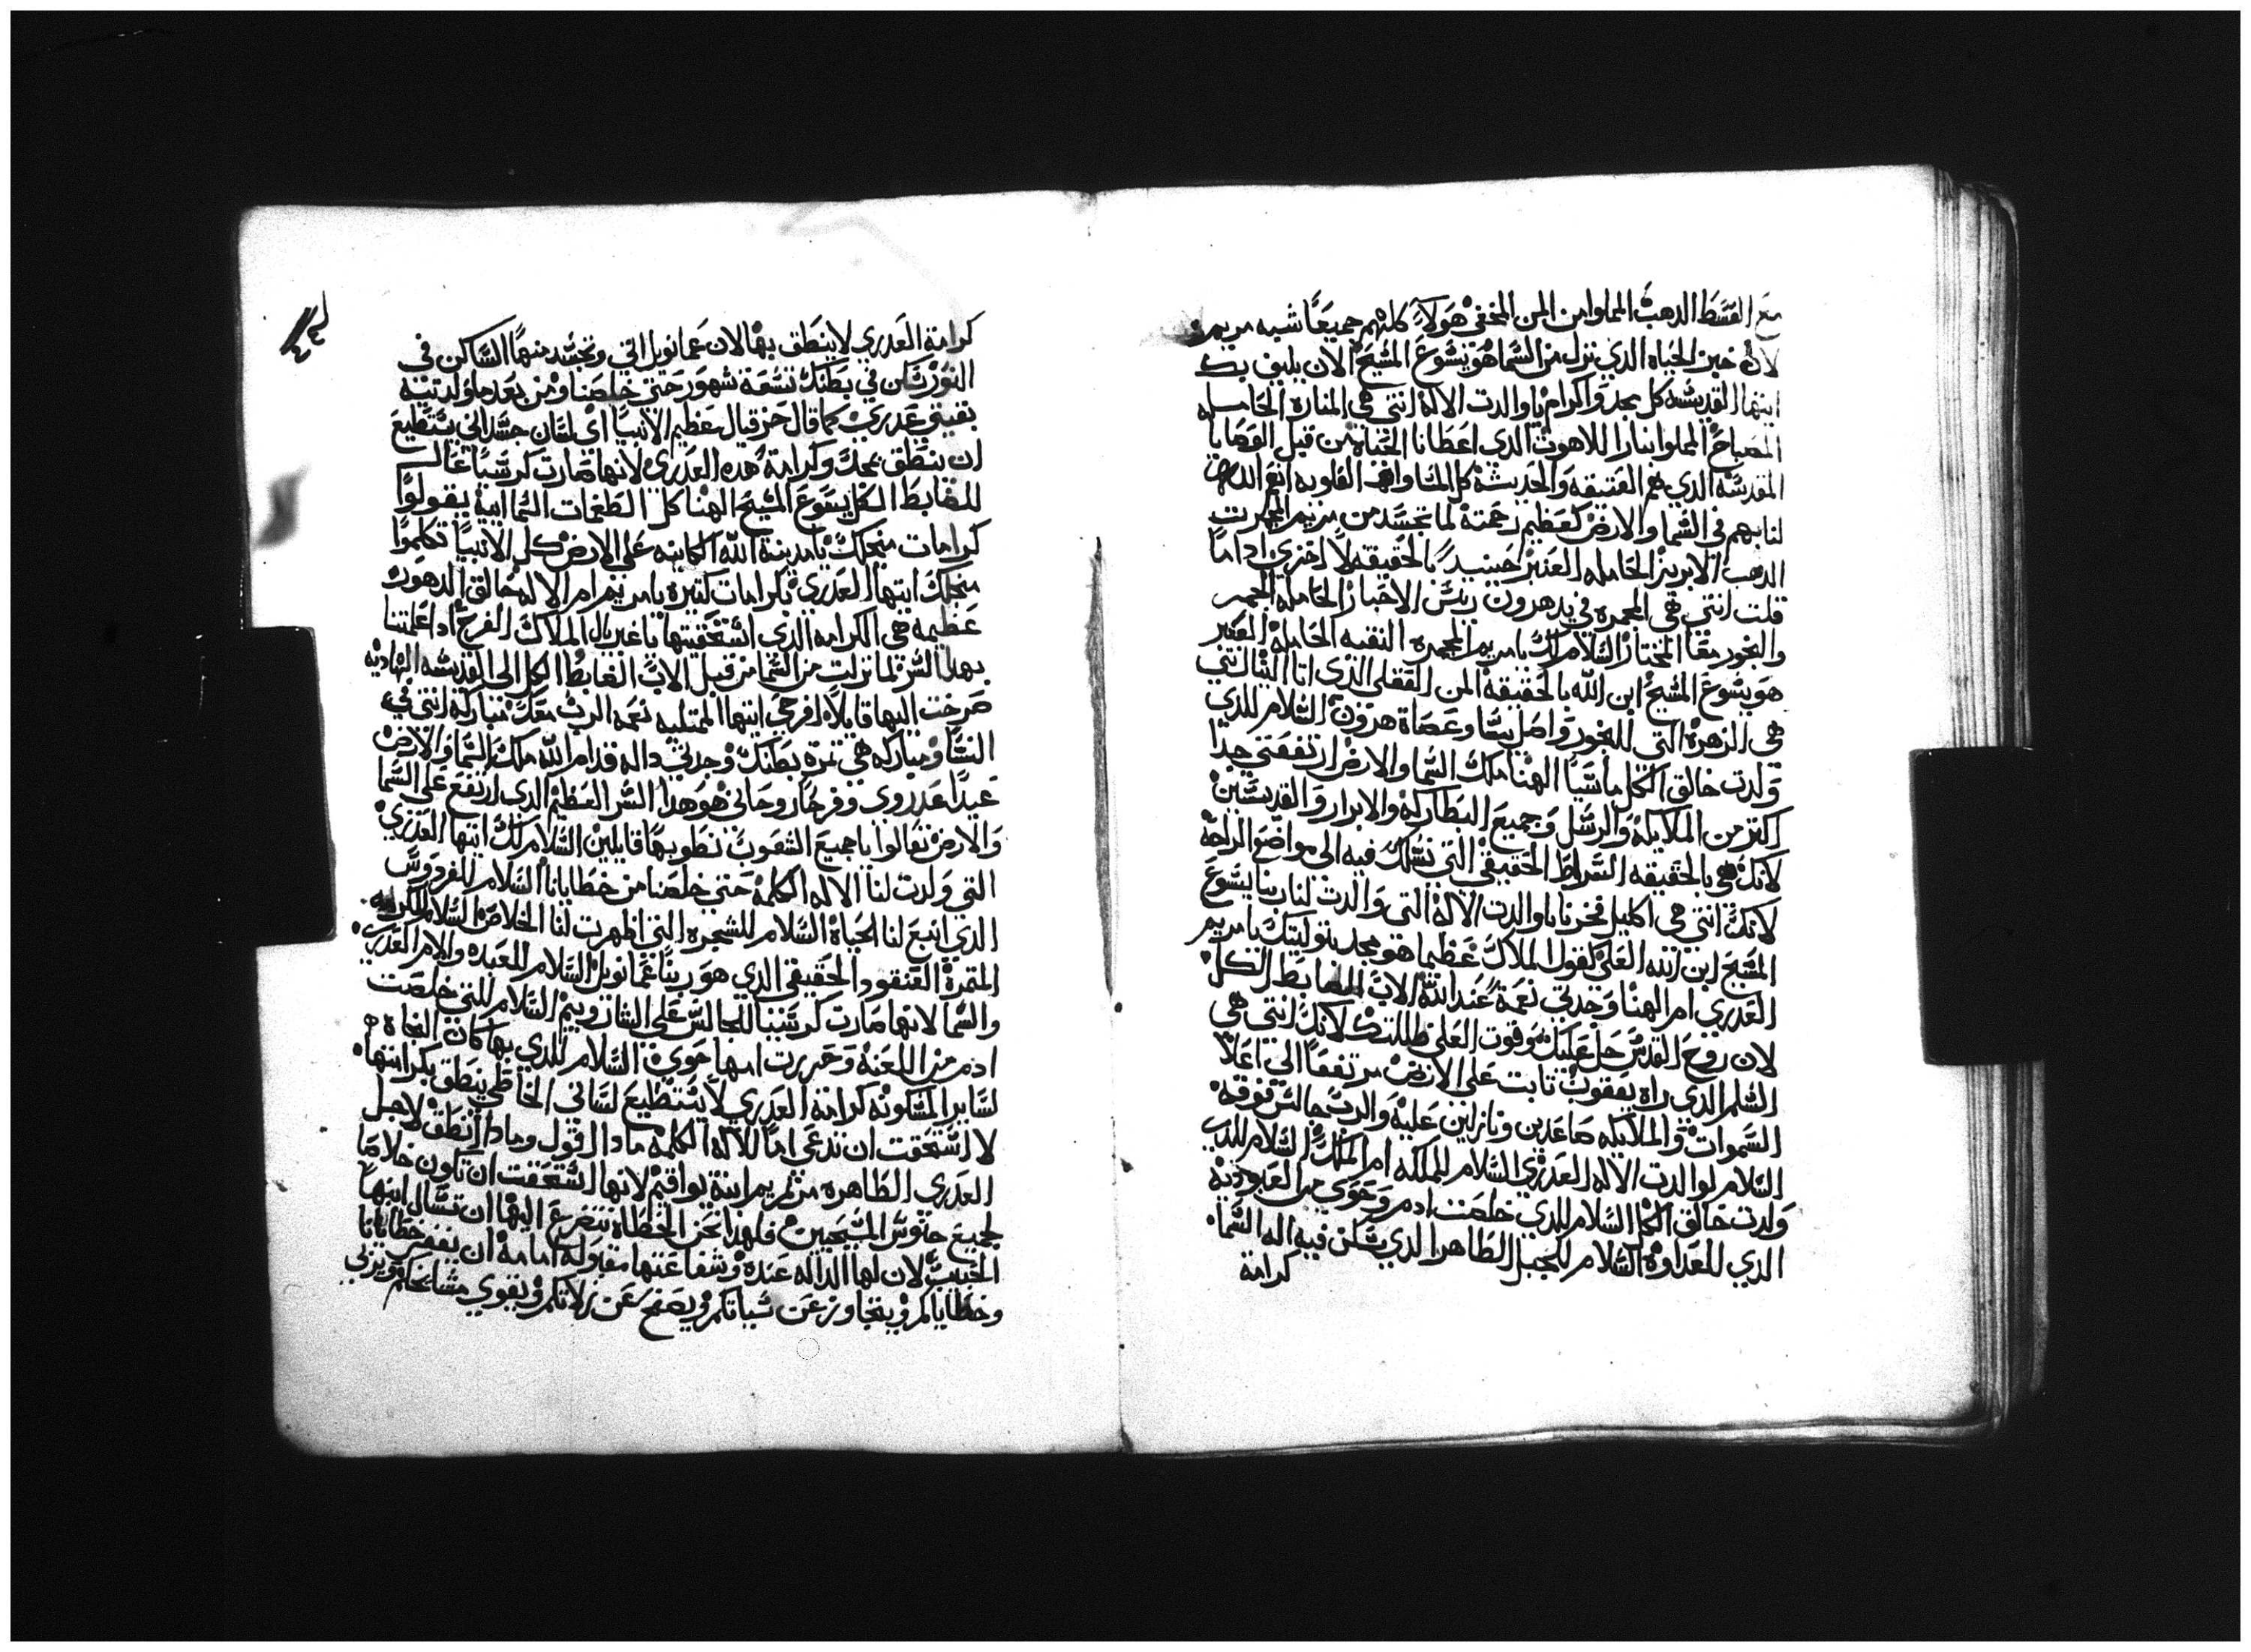 مع القسط الدهب المملوا من المن المخفي هولاء كلهم جميعًا شبه مريم
لان خبز الحياه الدي نزل من السما هو يسوع المسيح الان يليق بك
ايتها القديسه كل مجد واكرام يا والدت الاله انتي هي المناره الحامله
المصباح المملوا نارا اللاهوت الدي اعطانا الحياة من قبل الوصايا
المقدسه الدي هم العتيقه والحديثة كل المتواضعه القلوبه
لنا بهم في السما والارض كعظيم رحمتة لما تجسد من مريم المجمرت
الدهب الابريز الحامله العنبر حينيدٍ بالحقيقه لا اخزى ادا ما
قلت انتي هي المجمره في يد هرون ريس الاحبار الحامله الجمر
والبخور معًا المختار السلام لك يا مريم المجمره النقيه الحامله العنبر
هو يسوع المسيح ابن الله بالحقيقه المن العقلي الدي اتا الينا انتي
هي الزهرة التي للبخور واصل يسا وعصاة هرون السلام للدي
ولدت خالق الكل ماسيا الهنا ملك السما والارض ارتفعتي جدا
اكتر من الملايكة والرسل وجميع البطاركه والابرار والقديسين
لانك هي بالحقيقه السراط الحقيقي التي نسلك فيه الى مواضع الراحة
لانك انتي هي اكليل فخرنا يا والدت الاله التي والدت لنا ربنا يسوع
المسيح ابن الله العلي كقول الملاك عظيما هو مجد بتوليتك يا مريم
العدري ام الهنا وجدتي نعمة عند الله الاب الضابط الكل
لان روح القدس حل عليك وقوت العلي ظللتك لانك انتي هي
السلم الدي راه يعقوب تابت على الارض مرتفعًا الي اعلا
السموات والملايكه صاعدين ونازلين عليه والرب جالس فوقه
السلام لوالدت الاله العدري السلام للملكه ام الملك السلام للدي
ولدت خالق الكل السلام للدي خلصت ادم وحوي من العبودية
الدي للعداوة السلام للجبل الطاهر الدي سكن فيه اله السما
كرامة
كرامة العدري لا ينطق بها لان عمانويل اتى وتجسد منها الساكن في
النور سكن في بطنك تسعة شهور حتى خلصنا ومن بعد ما ولدتيه
بقيتي عدري كما قال حزقيال عظيم الانبيا اى لسان جسداني يستطيع
ان ينطق بمجد وكرامة هده العدرى لانها صارت كرسيًا عال
للضابط الكل يسوع المسيح الهنا كل الطغمات السمايية يقولوا
كرامات منجلك يا مدينة الله الكاينه على الارض كل الانبيا تكلموا
منجلك ايتها العدري بكرامات كتيرة يا مريم ام الاله خالق الدهور
عظيمه هي الكرامه الدي استحقيتها يا غبريال الملاك الفرح اد اعلمتنا
بهدا السر لما نزلت من السما من قبل الاب الضابط الكل الى القديسه الهاديه
صرخت اليها قايلاً افرحي ايتها الممتليه نعمه الرب معك مباركه انتي في
النسا ومباركه هي تمرة بطنك وجدتي داله قدام الله ملك السما والارض
عيدًا عدروي وفرحًا روحاني هو هدا السر العظيم الدي ارتفع على السما
والارض تعالوا يا جميع الشعوب نطوبها قايلين السلام لك ايتها العدري
التي ولدت لنا الاله الكلمة حتي خلصنا من خطايانا السلام للفردوس
الدي انبع لنا الحياة السلام للشجره التي اظهرت لنا الخلاص السلام للكرمه
المتمرة العنقود الحقيقي الدي هو ربنا عمانويل السلام للعبده والام العدري
والسما لانها صارت كرسيا للجالس على الشاروبيم السلام للتي خلصت
ادم من اللعنة وحررت امها حوي السلام للدي بها كان النجاة
لساير المسكونه كرامة العدري لا يستطيع لساني الخاطي ينطق بكرامتها
لا استحقت ان تدعى امًا للاله الكلمه مادا اقول ومادا انطق لاجل
العدري الطاهره مرتمريم ابنة يواقيم لانها استحقت ان تكون خلاصا
لجميع جنوس المسيحيين فلهدا نحن الخطاة نتضرع اليها ان تسال ابنها
الحبيب لان لها الداله عنده وشفاعتها مقبولة امامة ان يغفر خطايانا
وخطاياكم ويتجاوز عن سياتكم ويصفح عن زلاتكم ويقوي مشايخكم ويربي